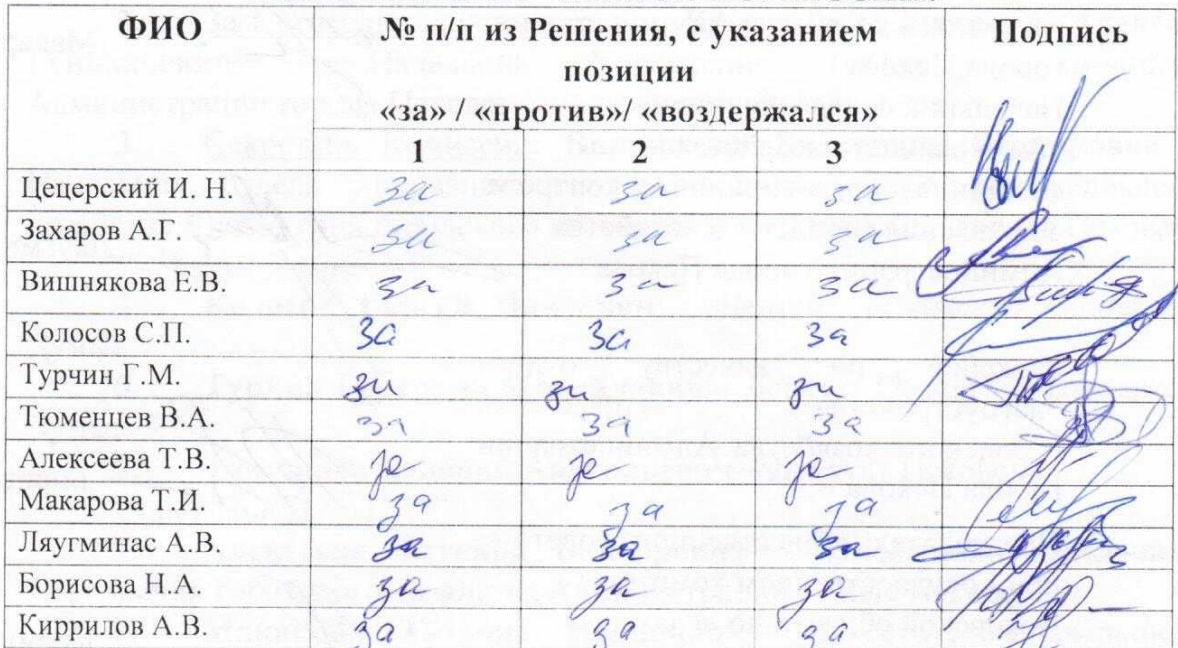 ФИО № п/п из Решения, с указанием Подпись
позиции
«за» / «против»/ «воздержался»
1 2 3
Цецерский И. Н. за за за
Захаров А.Г. за за за
Вишнякова Е.В. за за за
Колосов С.П. за за за
Турчин Г.М. за за за
Тюменцев В.А. за за за
Алексеева Т.В. за за за
Макарова Т.И. за за за
Ляугминас А.В. за за за
Борисова Н.А. за за за
Киррилов А.В. за за за